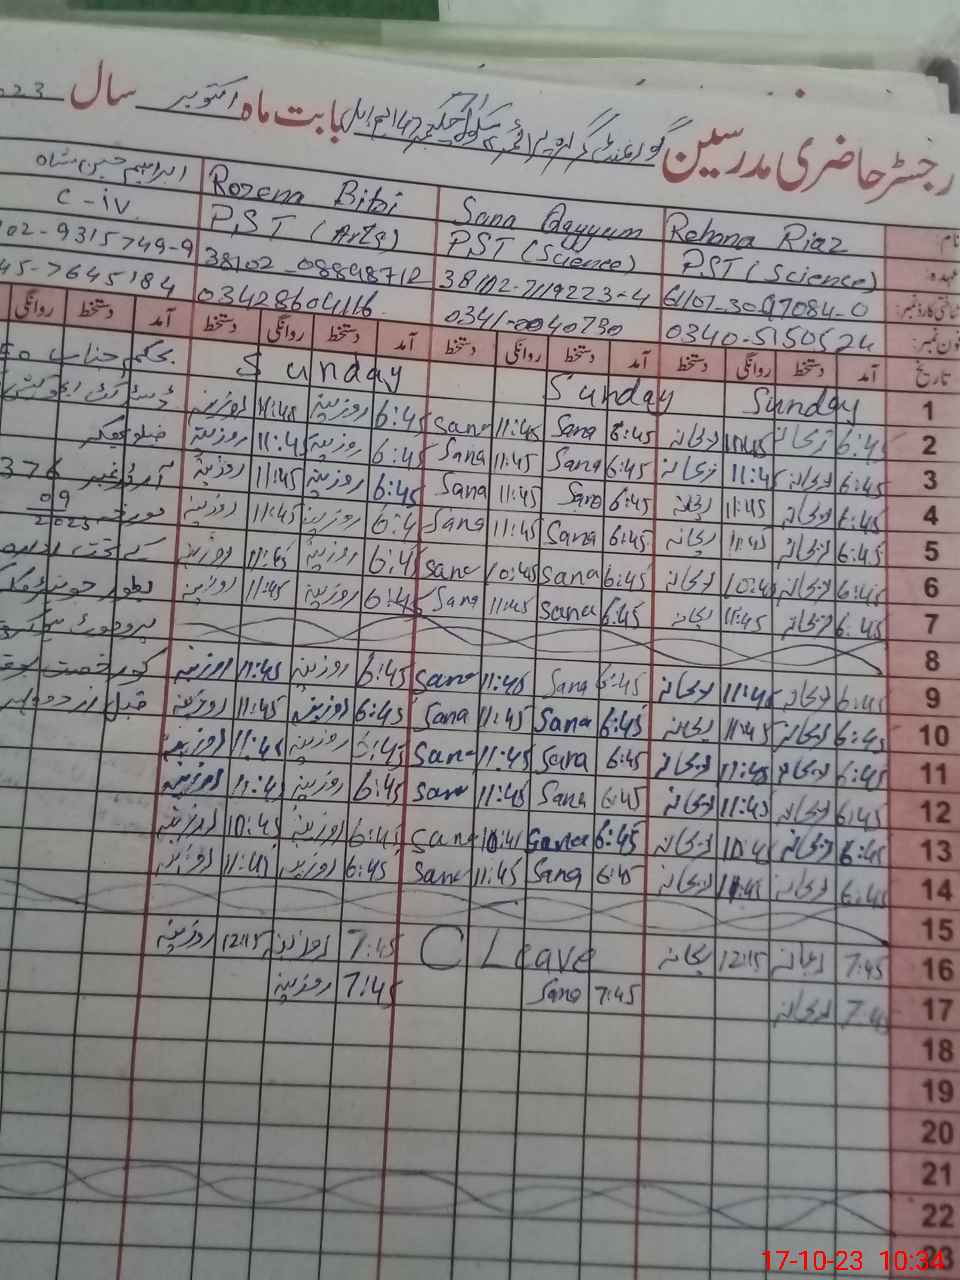 رجسٹر حاضری مدرسین بابت ماہ اکتوبر سال
نام: Rehana Riaz Sana Qayyum Rozena Bibi ابراہیم حسین شاہ
عہدہ: PST (Science) PST (Science) PST (Arts) C-iv
شناختی کارڈ نمبر: 61101-3007084-0 38102-7119223-4 38102-08898712 102-9315749-9
فون نمبر: 0340-5150524 0341-0040790 03428604116 45-7645184
تاریخ آمد دستخط روانگی دستخط آمد دستخط روانگی دستخط آمد دستخط روانگی دستخط آمد دستخط روانگی
1 Sunday Sunday Sunday بحکم جناب
2 6:45 ریحانہ 11:45 ریحانہ 6:45 Sana 11:45 Sana 6:45 روزینہ 11:45 روزینہ
3 6:45 ریحانہ 11:45 ریحانہ 6:45 Sana 11:45 Sana 6:45 روزینہ 11:45 روزینہ
4 6:45 ریحانہ 11:45 ریحانہ 6:45 Sana 11:45 Sana 6:45 روزینہ 11:45 روزینہ آرڈر نمبر 376
5 6:45 ریحانہ 11:45 ریحانہ 6:45 Sana 11:45 Sana 6:4 روزینہ 11:45 روزینہ مورخہ 09 2023
6 6:45 ریحانہ 10:45 ریحانہ 6:45 Sana 10:45 Sana 6:45 روزینہ 11:45 روزینہ کے تحت
7 6:45 ریحانہ 11:45 ریحانہ 6:45 Sana 11:45 Sana 6:45 روزینہ 11:45 روزینہ بطور
8
9 6:45 ریحانہ 11:45 ریحانہ 6:45 Sana 11:45 Sana 6:45 روزینہ 11:45 روزینہ کو رخصت
10 6:45 ریحانہ 11:45 ریحانہ 6:45 Sana 11:45 Sana 6:45 روزینہ 11:45 روزینہ قبل از دوپہر
11 6:45 ریحانہ 11:45 ریحانہ 6:45 Sana 11:45 Sana 6:45 روزینہ 11:45 روزینہ
12 6:45 ریحانہ 11:45 ریحانہ 6:45 Sana 11:45 Sana 6:45 روزینہ 11:45 روزینہ
13 6:45 ریحانہ 10:4 ریحانہ 6:45 Sana 10:4 Sana 6:45 روزینہ 10:45 روزینہ
14 6:45 ریحانہ 11:45 ریحانہ 6:45 Sana 11:45 Sana 6:45 روزینہ 11:45 روزینہ
15
16 7:45 ریحانہ 12:15 ریحانہ C Leave 7:45 روزینہ 12:15 روزینہ
17 7:45 ریحانہ 7:45 Sana 7:45 روزینہ
18
19
20
21
22
23
17-10-23 10:34